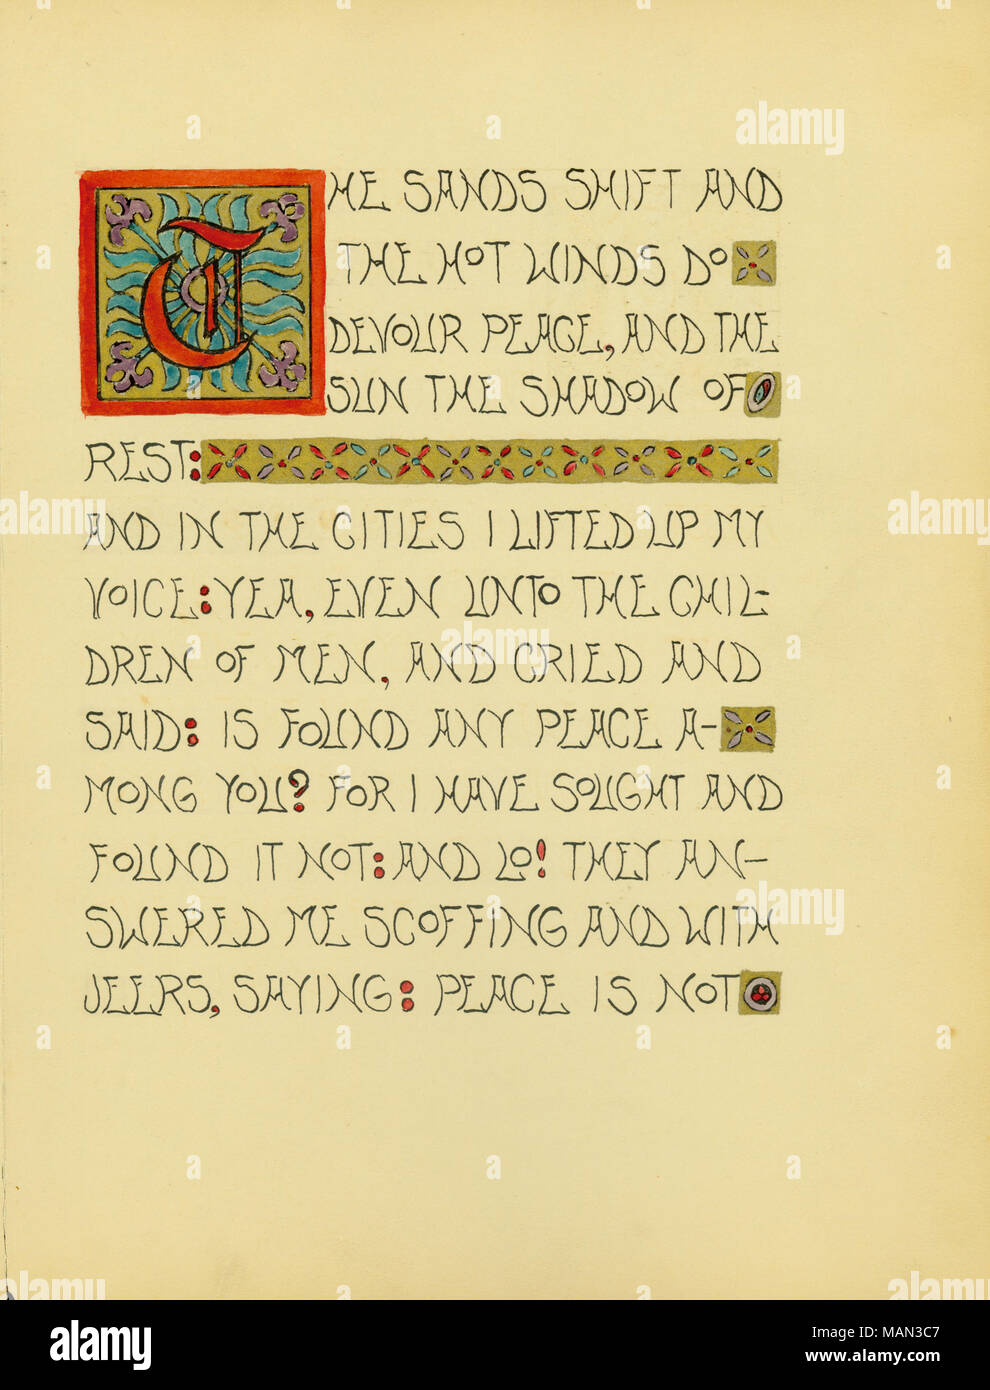 THE SANDS SHIFT AND
THE HOT WINDS DO
DEVOUR PEACE, AND THE
SUN THE SHADOW OF
REST:
AND IN THE CITIES I LIFTED UP MY
VOICE: YEA, EVEN UNTO THE CHIL-
DREN OF MEN, AND CRIED AND
SAID: IS FOUND ANY PEACE A-
MONG YOU? FOR I HAVE SOUGHT AND
FOUND IT NOT: AND LO! THEY AN-
SWERED ME SCOFFING AND WITH
JEERS, SAYING: PEACE IS NOT
alamy
Image ID: MAN3C7
www.alamy.com